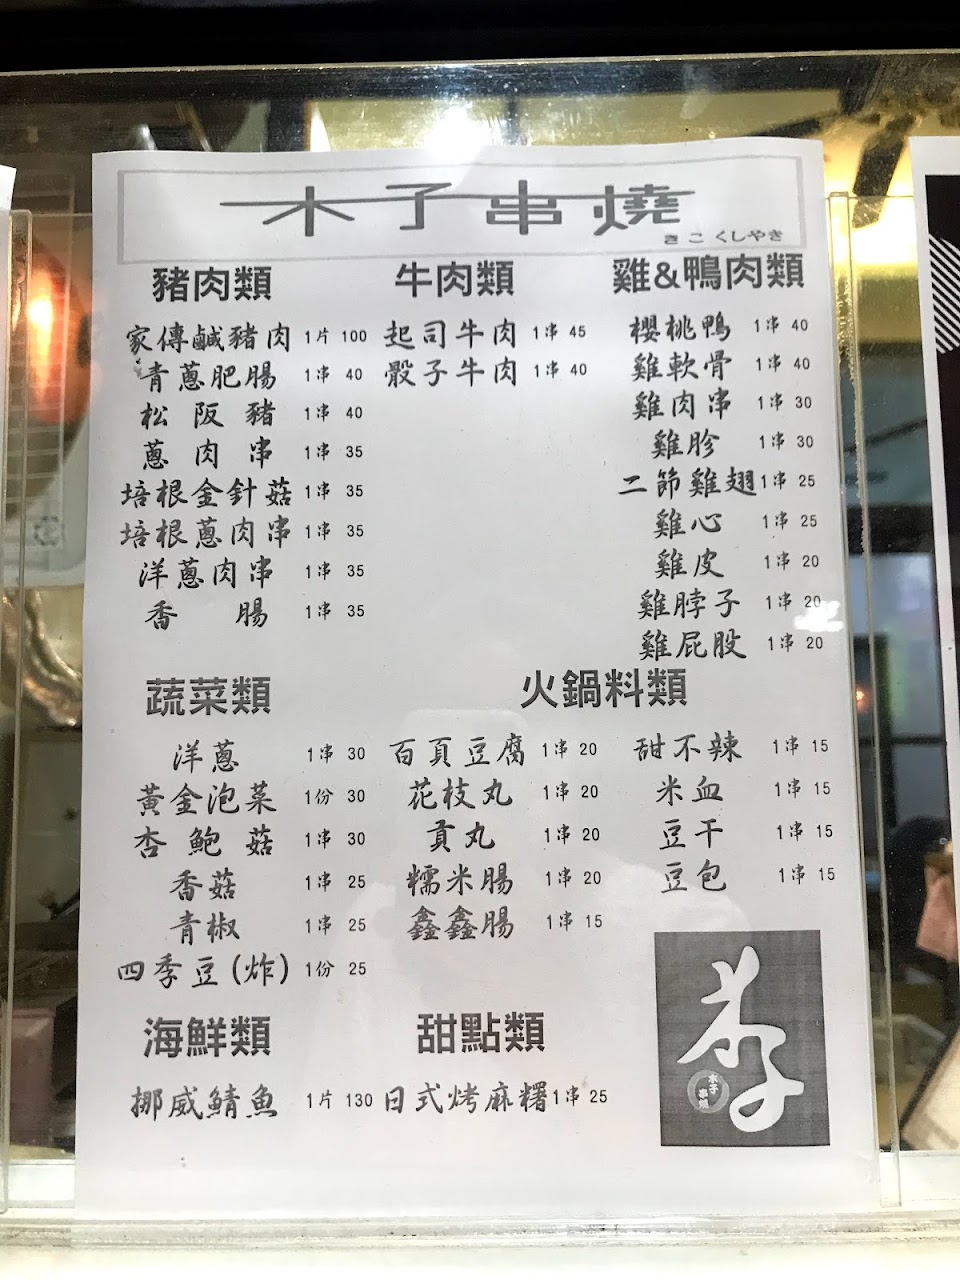 木子串燒
きこ くしやき
豬肉類
家傳鹹豬肉 1片 100
青蔥肥腸 1串 40
松阪豬 1串 40
蔥肉串 1串 35
培根金針菇 1串 35
培根蔥肉串 1串 35
洋蔥肉串 1串 35
香腸 1串 35
牛肉類
起司牛肉 1串 45
骰子牛肉 1串 40
雞&鴨肉類
櫻桃鴨 1串 40
雞軟骨 1串 40
雞肉串 1串 30
雞胗 1串 30
二節雞翅 1串 25
雞心 1串 25
雞皮 1串 20
雞脖子 1串 20
雞屁股 1串 20
蔬菜類
洋蔥 1串 30
黃金泡菜 1份 30
杏鮑菇 1串 30
香菇 1串 25
青椒 1串 25
四季豆(炸) 1份 25
火鍋料類
百頁豆腐 1串 20
花枝丸 1串 20
貢丸 1串 20
糯米腸 1串 20
鑫鑫腸 1串 15
甜不辣 1串 15
米血 1串 15
豆干 1串 15
豆包 1串 15
海鮮類
挪威鯖魚 1片 130
甜點類
日式烤麻糬 1串 25
木子
木子
串燒